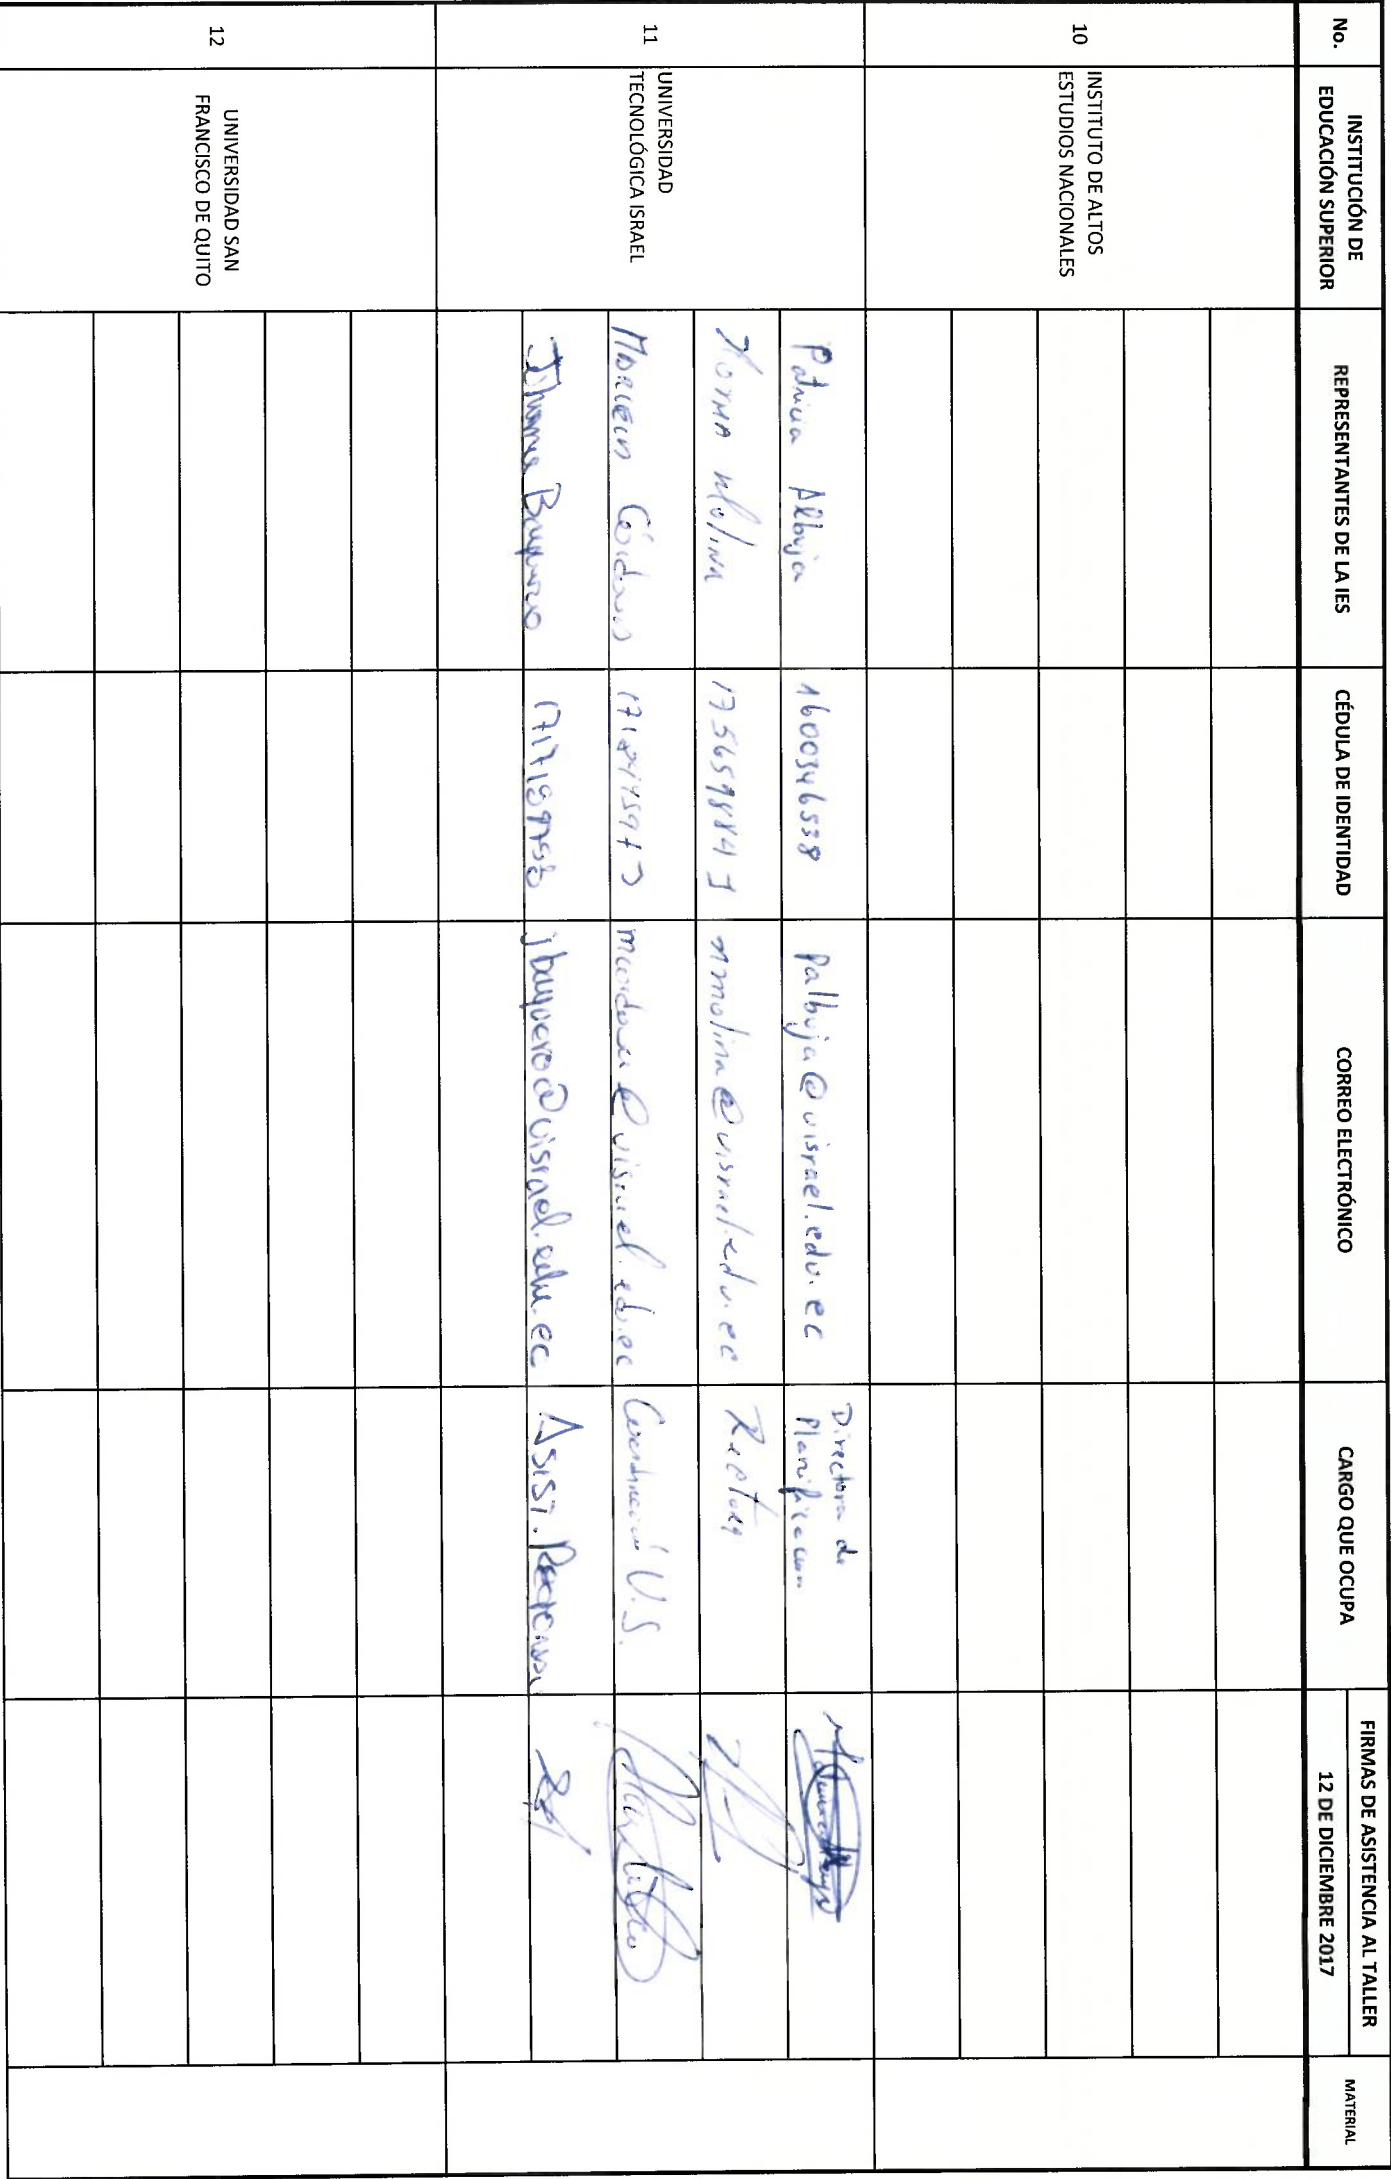 No.
INSTITUCIÓN DE
EDUCACIÓN SUPERIOR
REPRESENTANTES DE LA IES
CÉDULA DE IDENTIDAD
CORREO ELECTRÓNICO
CARGO QUE OCUPA
FIRMAS DE ASISTENCIA AL TALLER
12 DE DICIEMBRE 2017
MATERIAL
10
INSTITUTO DE ALTOS
ESTUDIOS NACIONALES
11
UNIVERSIDAD
TECNOLÓGICA ISRAEL
Patricia Albuja
1600346538
palbuja@uisrael.edu.ec
Directora de
Planificacion
Norma Molina
nmolina@uisrael.edu.ec
Rectora
U.S.
Baquero
jbaquero@uisrael.edu.ec
Asist.
12
UNIVERSIDAD SAN
FRANCISCO DE QUITO